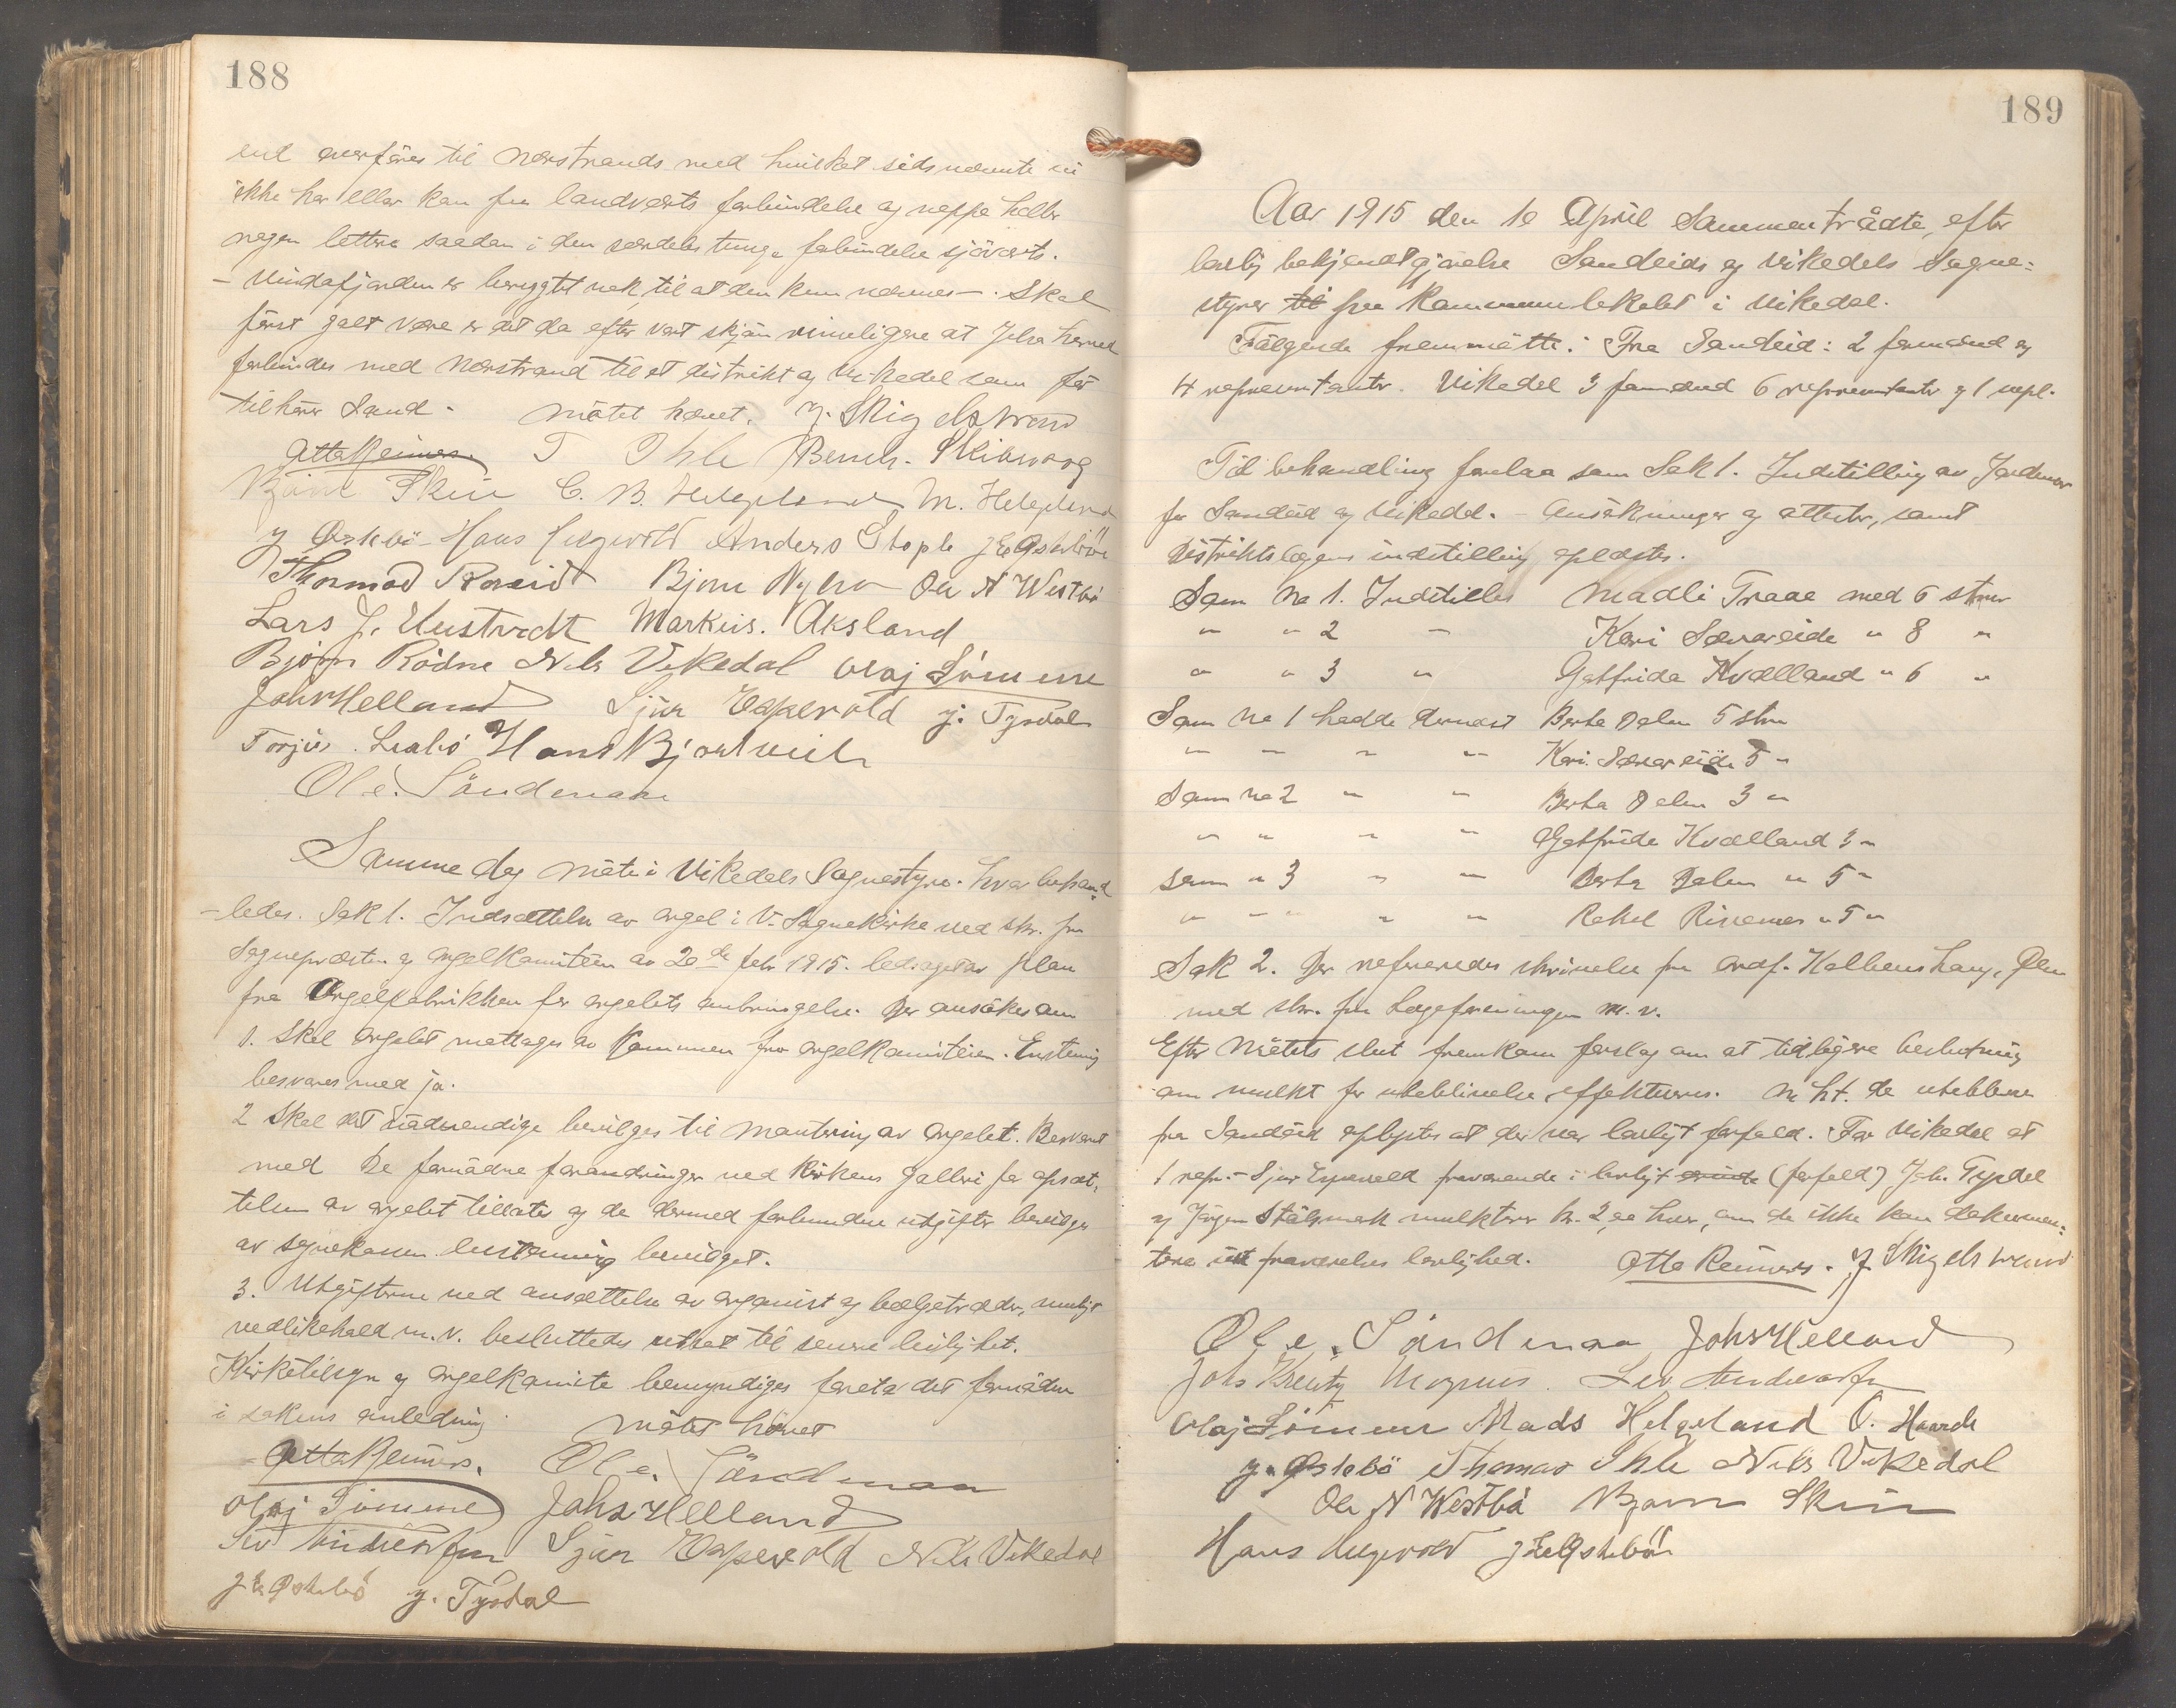 188
end overføres til Nærstrands med hvilket sidsnævnte vi
ikke har eller kan faa landværts forbindelse og neppe heller
nogen lettere saadan i den særdeles tunge forbindelse sjøværts.
- Vindafjorden er berygtet nok til at den kun nævnes -. Skal
først galt være er det da efter vort skjøn rimeligere at Jelsa herred
forbindes med Nærstrand til et distrikt og Vikedal som før
tilhører Sand. Møtet hævet. J. Skigelstrand
Otto Reimers. T Ihle Bernh. Skibevaag
Bjarne Skein C. B. Helgeland M. Helgeland
J Østebø Hans Helgevold Anders Stople J E Østebø
Thormod Røveid Bjorn Nylvo Ole N Westbø
Lars J. Mustvedt Markus. Aksland
Bjørn Rødne Nils Vikedal Olaj Sømme
Johs Helland Sjur Espevold J. Tysdal
Torjus. Leabø Hans Bjordevik
Ole. Søndenaa
Samme dag møte i Vikedals Sognestyre. Hvor behand
-ledes. Sak 1. Indsættelse av orgel i V. Sognekirke ved skr. fra
Sognepræsten og Orgelkomiteen av 20de febr 1915. ledsaget av plan
fra Orgelfabrikken for orgelets anbringelse. Der ansøkes om
1. Skal orgelet mottages av Kommunen fra orgelkomiteen. Enstemmig
besvares med ja.
2 Skal det nødvendige bevilges til Montering av orgelet. Besvaret
med De fornødne forandringer ved Kirkens galleri for opsæt,
telsen av orgelet tillates og de dermed forbundne utgifter bevilges
av sognekassen. Enstemmig bevilget.
3. Utgifterne ved ansættelse av organist og bælgetræder, mulig
vedlikehold m.v. besluttedes utsat til senere leilighet.
Kirketilsyn og orgelkomite bemyndiges foreta det fornødne
i sakens anledning. Møtet hævet
Otto Reimers. Ole. Søndenaa
Olaj Sømme Johs Helland
Siv Andersen Sjur Espevold Nils Vikedal
J E Østebø J. Tysdal
189
Aar 1915 den 10 April Sammentraadte, efter
lovlig bekjendtgjørelse Sandeids og Vikedals Sogne-
styrer til paa Kommunelokalet i Vikedal.
Følgende fremmøtte: Fra Sandeid: 2 formænd og
4 repræsentanter. Vikedal 3 formænd 6 repræsentanter og 1 supl.
Til behandling forelaa som Sak 1. Indstilling av Jordmor
for Sandeid og Vikedal. - Ansøkninger og attester, samt
Distriktslægens indstilling oplæstes.
Som No 1. Indstilles Madli Traae med 6 stmr
" " 2 " Kari Særareide " 8 "
" " 3 " Gotfrida Kvalland " 6 "
Som No 1 hadde dernæst Berta Dalen 5 stm
" " " " Kari. Særareide 5 "
Som No 2 " " Berta Dalen 3 "
" " " " Gotfrida Kvalland 3 "
Som " 3 " " Berta Dalen " 5 "
" " " " Rakel Risemer " 5 "
Sak 2. Der refereredes skrivelse fra Ordf. Kolbenshaug, Ølen
med skr. fra Lægeforeningen m.v.
Efter Møtets slut fremkom forslag om at tidligere beslutning
om mulkt for utebblivelse effektueres. M. h. t. de utebblevne
fra Sandeid oplystes at der var lovligt forfald. For Vikedal at
1 repr. - Sjur Espevold fraværende i lovligt ærinde (forfald) Joh. Tysdal
og Jørgen Stølsmark mulkteres kr. 2,00 hver, om de ikke kan dokumen-
tere sit fraværelses lovlighed. Otto Reimers. J. Skigelstrand
Ole. Søndenaa Johs Helland
Johs Kreutz Magnus. Siv Andersen
Olaj Sømme Mads Helgeland O. Haarde
J. Østebø Thomas Ihle Nils Vikedal
Ole N Westbø Bjarne Skein
Hans Helgevold J E Østebø